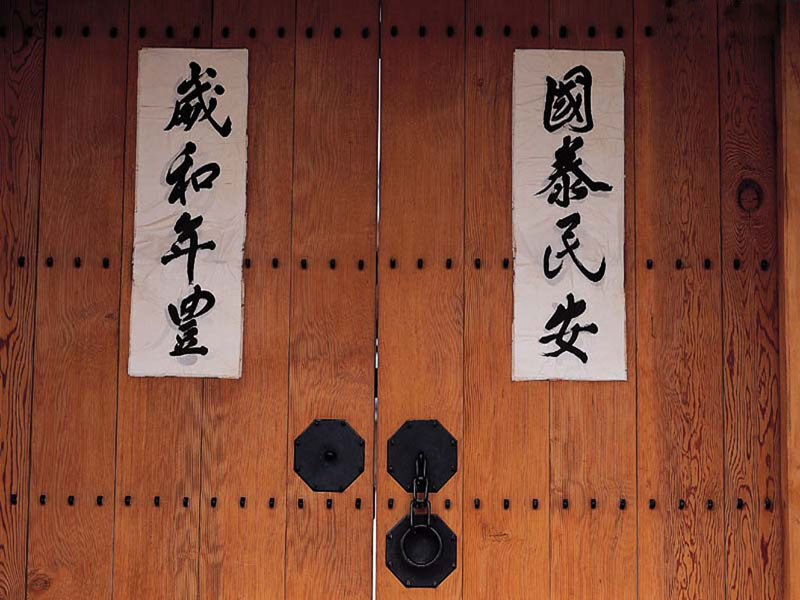 國泰民安
歲和年豊